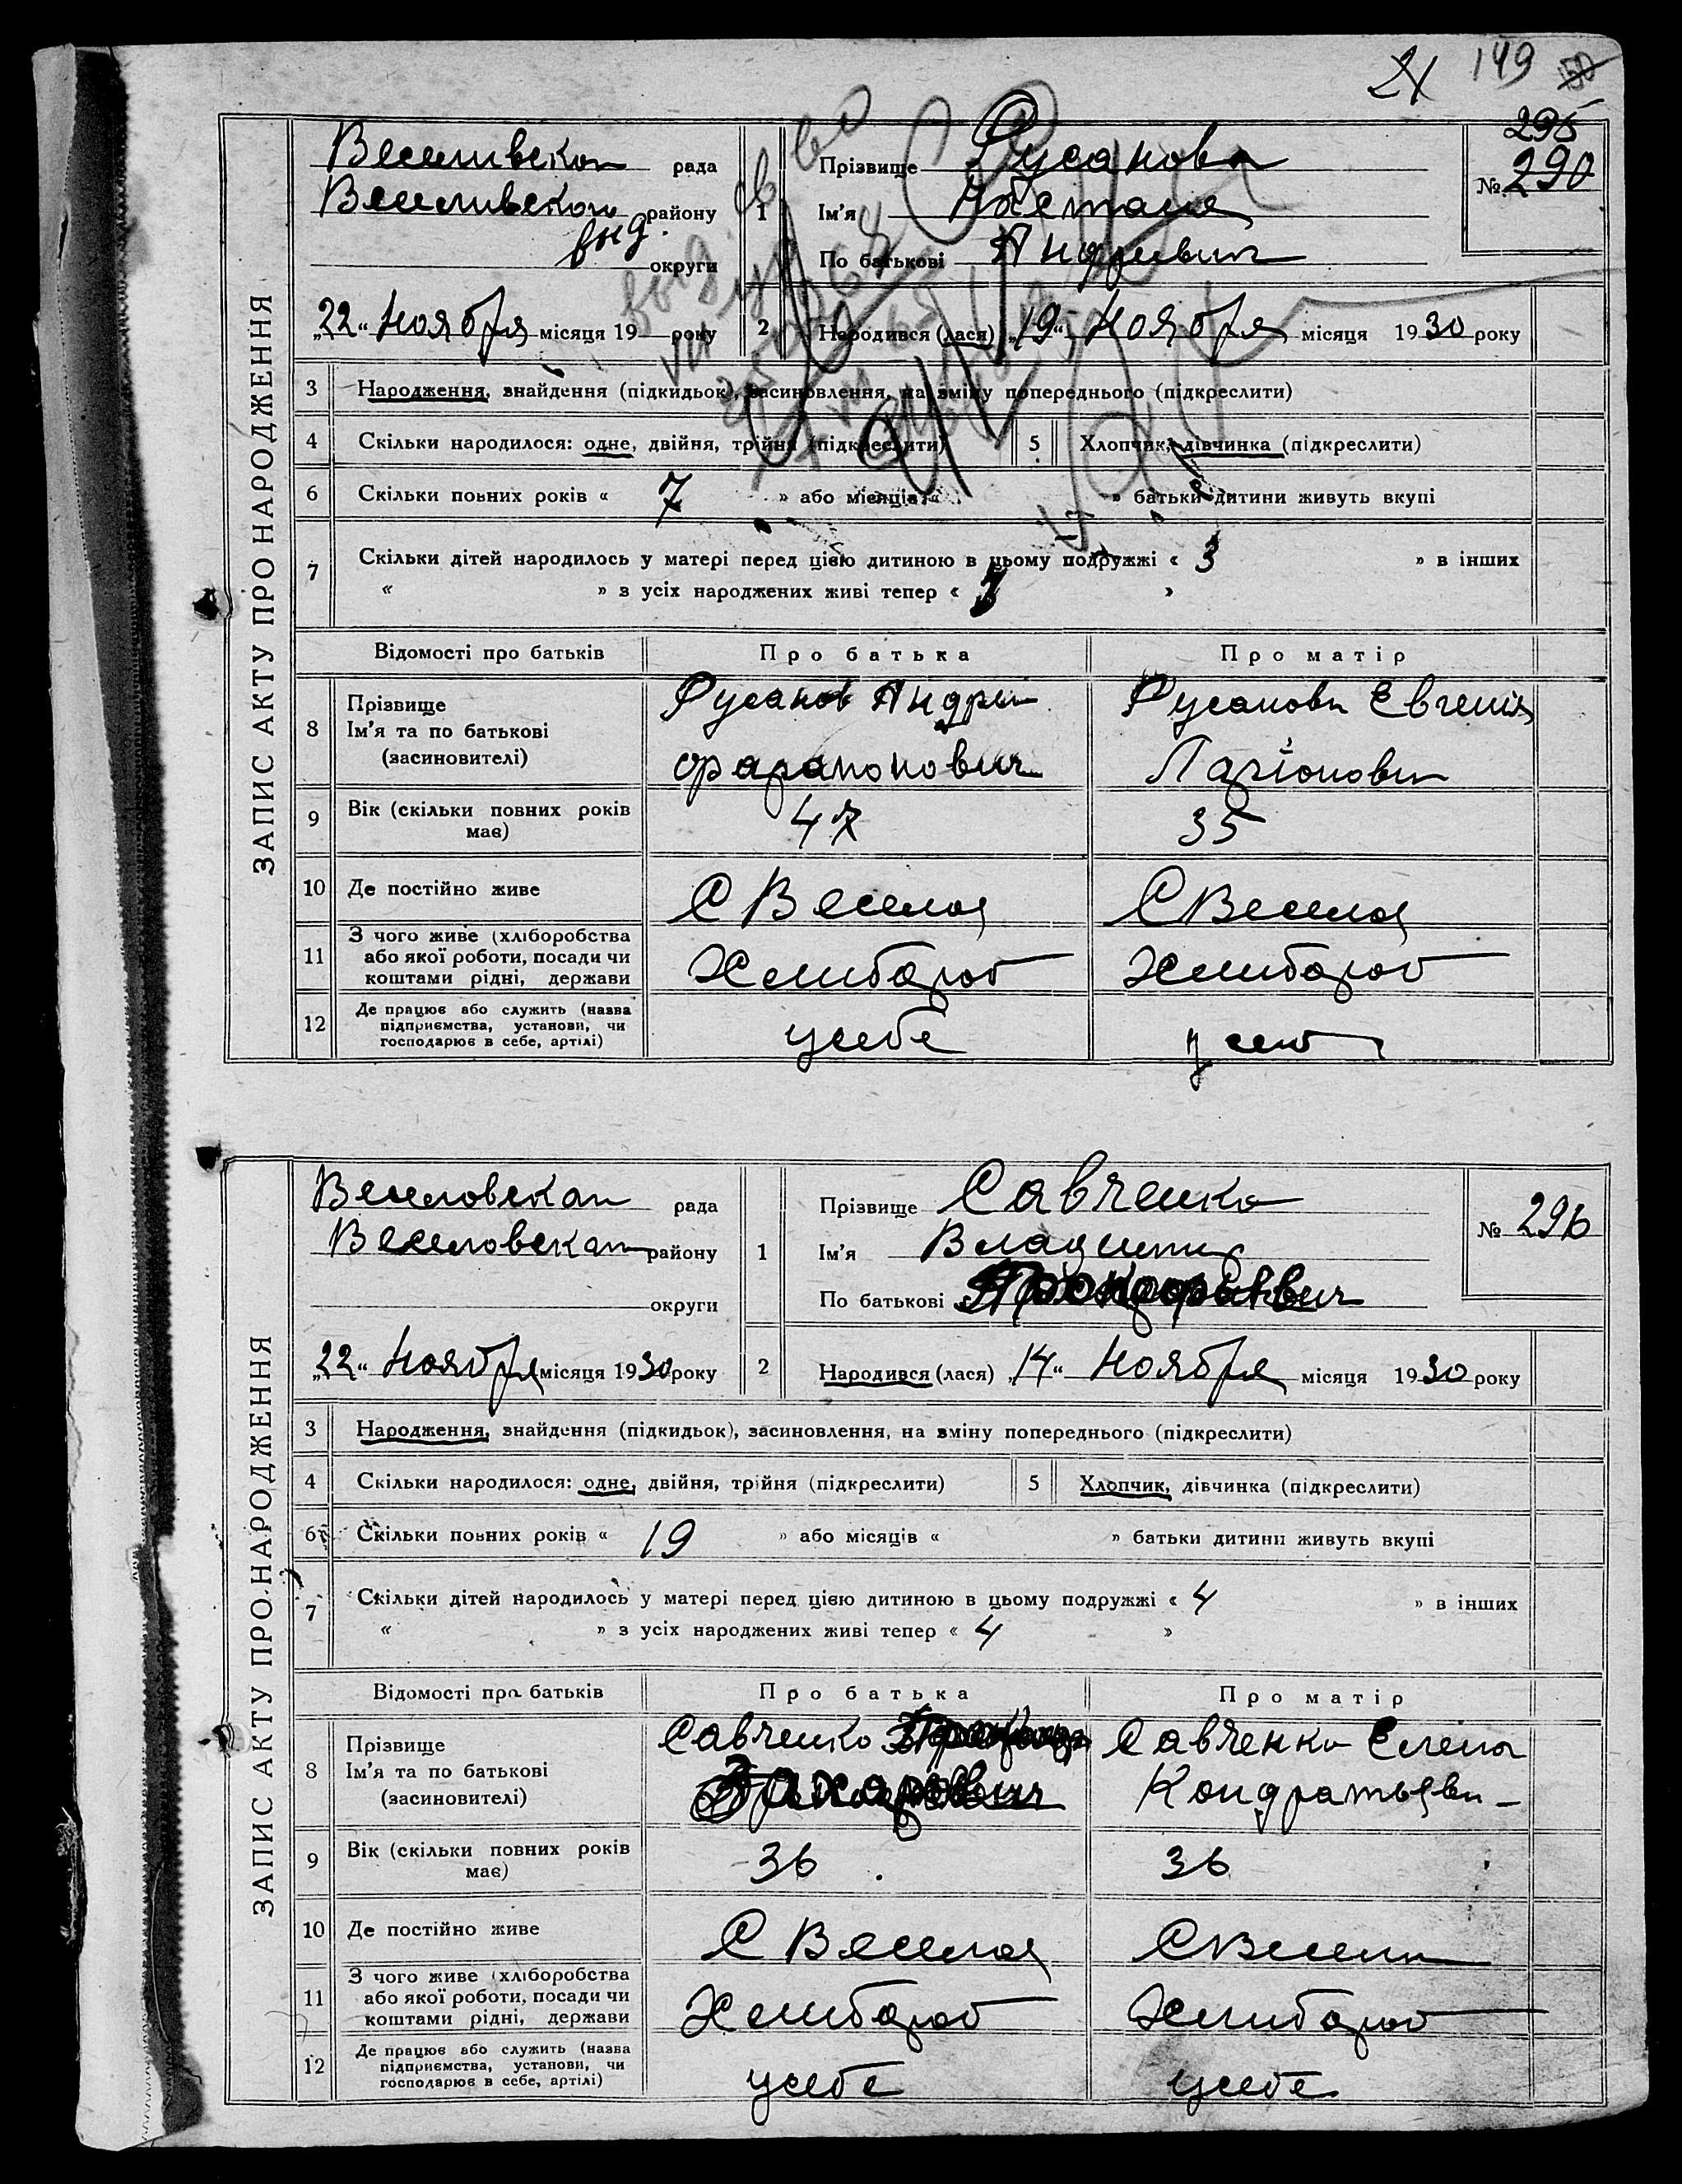 149
295
290
ЗАПИС АКТУ ПРО НАРОДЖЕННЯ
рада
району
выд.
округи
„22“ Ноября місяця 19 року
1 Прізвище Русанова
Ім'я
По батькові
№ 290
2 Народився (лася) „19“ Ноября місяця 1930 року
3 Народження, знайдення (підкидьок), засиновлення, на зміну попереднього (підкреслити)
4 Скільки народилося: одне, двійня, трійня (підкреслити) 5 Хлопчик, дівчинка (підкреслити)
6 Скільки повних років « 7 » або місяців « » батьки дитини живуть вкупі
7 Скільки дітей народилось у матері перед цією дитиною в цьому подружжі « 3 » в інших
« » з усіх народжених живі тепер « »
Відомості про батьків Про батька Про матір
8 Прізвище
Ім'я та по батькові
(засиновителі)
Русанов Андрей
Русанова Евгения
9 Вік (скільки повних років
має) 47 35
10 Де постійно живе С Веселоя С Веселоя
11 З чого живе (хліборобства
або якої роботи, посади чи
коштами рідні, держави
Хлибороб Хлибороб
12 Де працює або служить (назва
підприємства, установи, чи
господарює в себе, артілі)
усебе
ЗАПИС АКТУ ПРО НАРОДЖЕННЯ
Веселовская рада
Веселовская району
округи
„22“ Ноября місяця 1930 року
1 Прізвище Савченко
Ім'я Владимир
По батькові
№ 296
2 Народився (лася) „14“ Ноября місяця 1930 року
3 Народження, знайдення (підкидьок), засиновлення, на зміну попереднього (підкреслити)
4 Скільки народилося: одне, двійня, трійня (підкреслити) 5 Хлопчик, дівчинка (підкреслити)
6 Скільки повних років « 19 » або місяців « » батьки дитини живуть вкупі
7 Скільки дітей народилось у матері перед цією дитиною в цьому подружжі « 4 » в інших
« » з усіх народжених живі тепер « 4 »
Відомості про батьків Про батька Про матір
8 Прізвище
Ім'я та по батькові
(засиновителі)
Савченко
Захарович
Савченко Елена
Кондратьевн
9 Вік (скільки повних років
має) 36 36
10 Де постійно живе С Веселоя С Весели
11 З чого живе (хліборобства
або якої роботи, посади чи
коштами рідні, держави
Хлибороб Хлибороб
12 Де працює або служить (назва
підприємства, установи, чи
господарює в себе, артілі)
усебе усебе